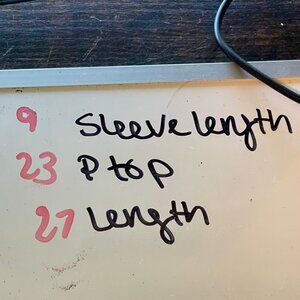 9 Sleeve length
23 P to P
27 Length